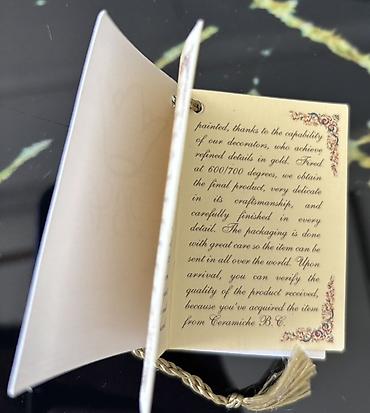 painted, thanks to the capability
of our decorators, who achieve
refined details in gold. Fired
at 600/700 degrees, we obtain
the final product, very delicate
in its craftsmanship, and
carefully finished in every
detail. The packaging is done
with great care so the item can be
sent in all over the world. Upon
arrival, you can verify the
quality of the product received,
because you've acquired the item
from Ceramiche B.C.